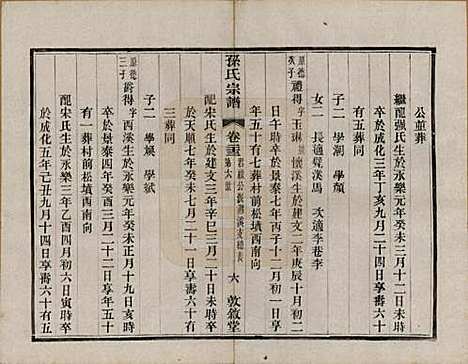 公葬
繼配强氏生於永樂元年癸未三月十一日未時
卒於成化三年丁亥八月二十日享壽六十有五葬同
子二 學潮 學顏
女二 長適聲溪馬 次適李巷李
原德次子禮得字玉琳號懷溪生於建文二年庚辰十月初二
日午時卒於景泰七年丙子十二月初一日享
年五十有七葬村前松墳西南向
配宋氏生於建文三年辛巳二月二十日未時卒
於天順七年癸未七月二十一日享壽六十有
三葬同
孫氏宗譜
卷三 第六世
六 敦敘堂
子二 學煥 學斌
原德三子爵得字西溪生於永樂元年癸未正月十九日亥時
卒於景泰四年癸酉三月二十二日享年五十
有一葬村前松墳西南向
配宋氏生於永樂三年乙酉四月初六日寅時卒
於成化五年己丑九月十四日享壽六十有五